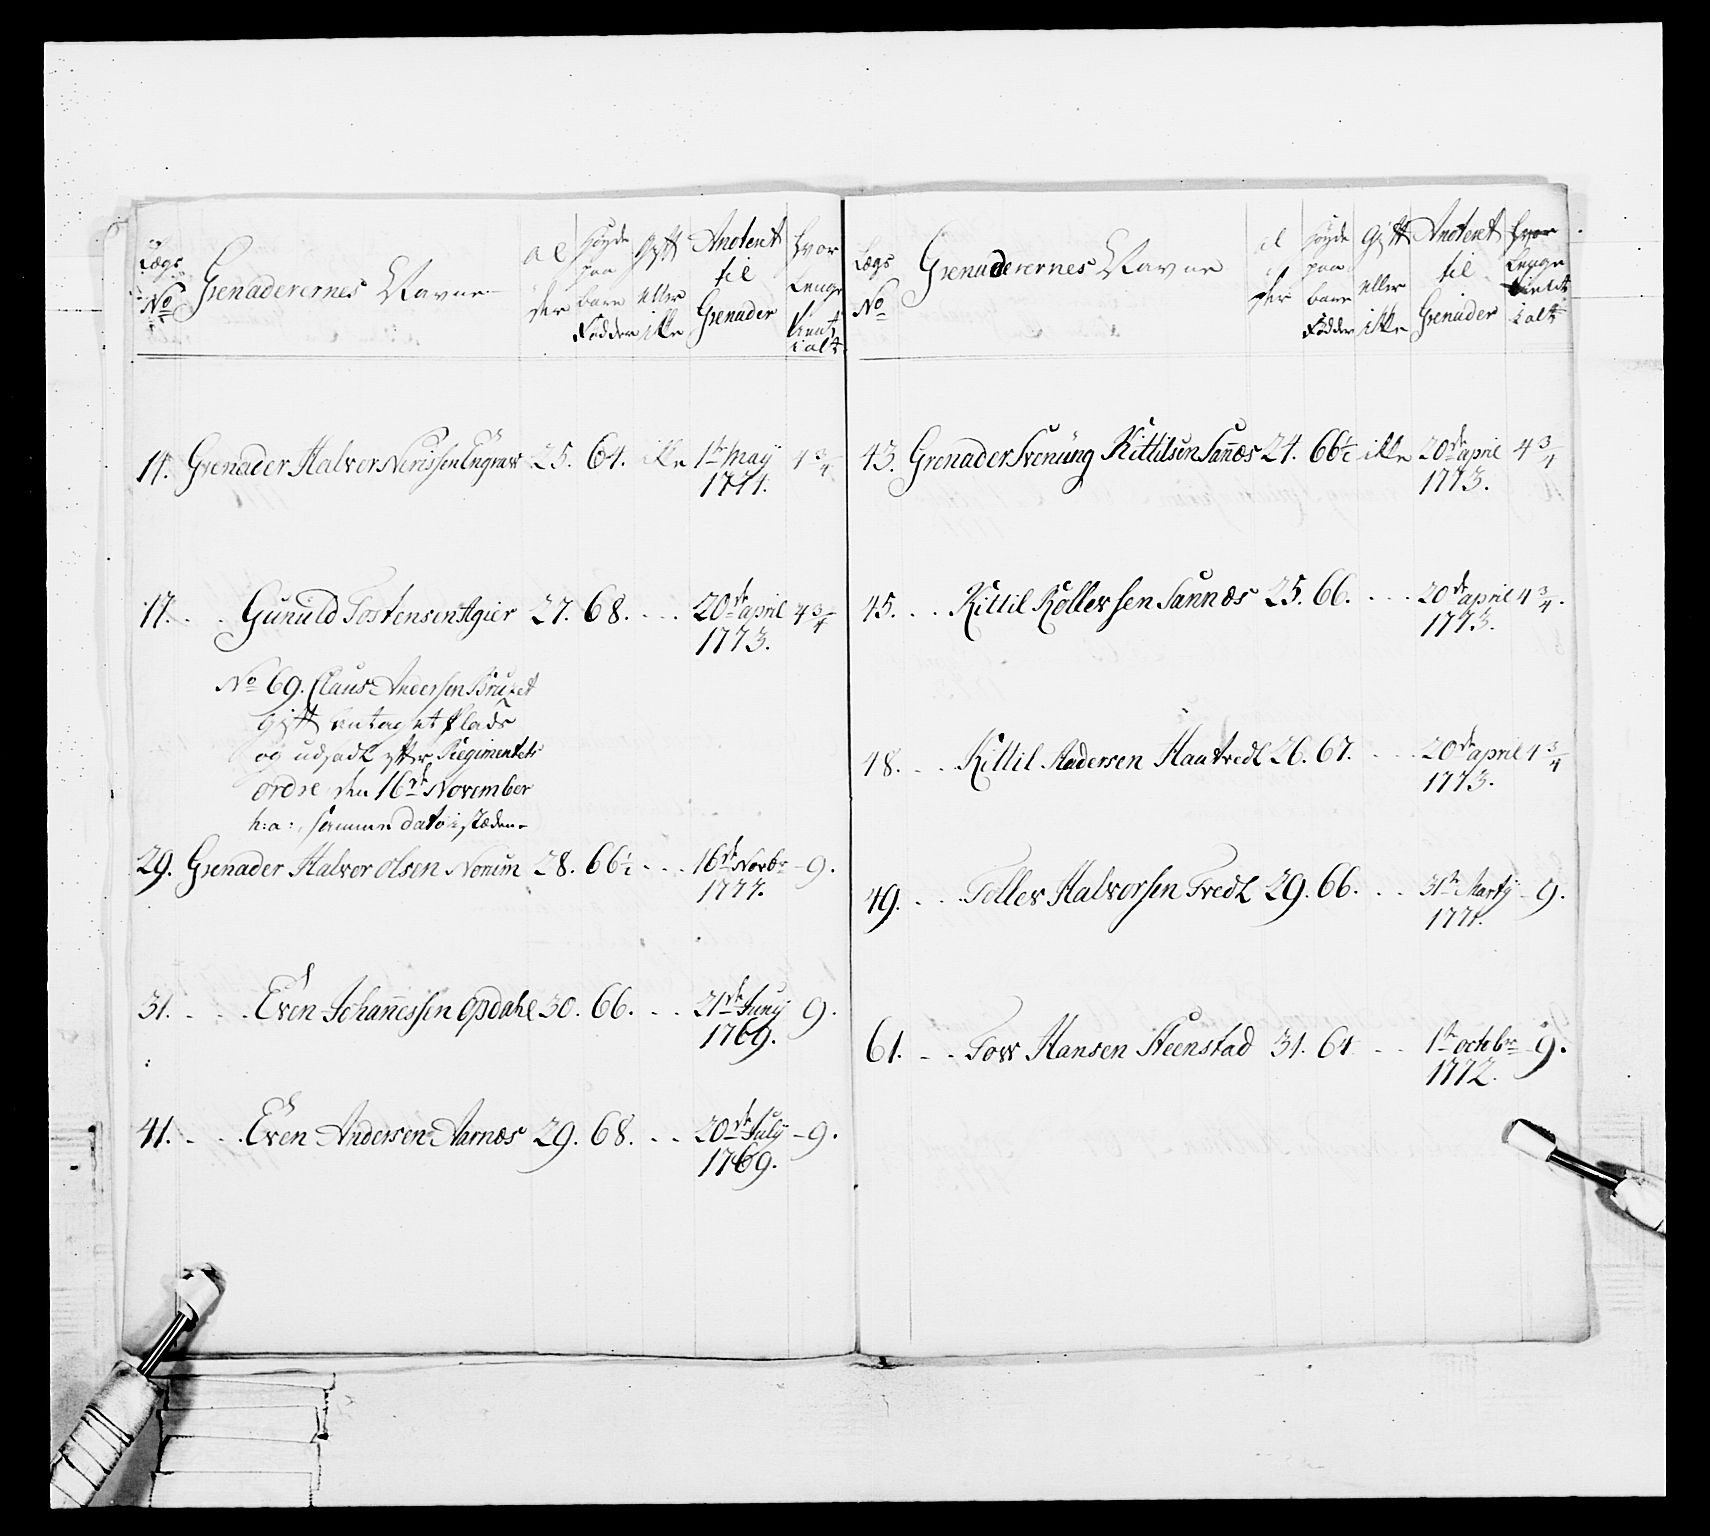 Lægs No
Grenaderernes Navne
al der
Høyde paa bare Fødder
Gift eller ikke
Anoteret til Grenader
Hvor Lenge tient i alt
14. Grenader Halvor Nerissen Engrav 25. 64. ikke 1te May 4 3/4
1771.
17. . . Gunuld Tostensen Agier 27. 68. . . . 20de april 4 3/4
1773.
No 69. Claus Andersen Bruset
gift antaget Plads
og udsadt efter Regimentets
ordre den 16de November
h: a: , samme dato i stæden
29. Grenader Halvor Olsen Norum 28. 66 1/2 . . . 16de Novbr - 9.
1777.
31. . . . Even Johannessen Opdahl 30. 66. . . 21de Juny 9.
1769.
41. . . . Even Andersen Aarnæs 29. 68. . . 20de July - 9.
1769.
Lægs No
Grenaderernes Navne
al der
Høyde paa bare Fødder
Gift eller ikke
Anoteret til Grenader
Hvor Lenge tient i alt
43. Grenader Svenung Kittilsen Sannæs 24. 66 1/2 ikke 20de april 4 3/4
1773.
45. . . Kittil Rollevsen Sannæs 25. 66. . . . 20de april 4 3/4.
1773.
48. . . Kittil Andersen Haatvedt 26. 67. . . . 20de april 4 3/4
1773.
49. . . . Tollev Halvorsen Tvedt 29. 66. . . 31te Marty - 9.
1771.
61. . . . Tow Hansen Steenstad 31. 64 . . 1te octobr - 9.
1772.